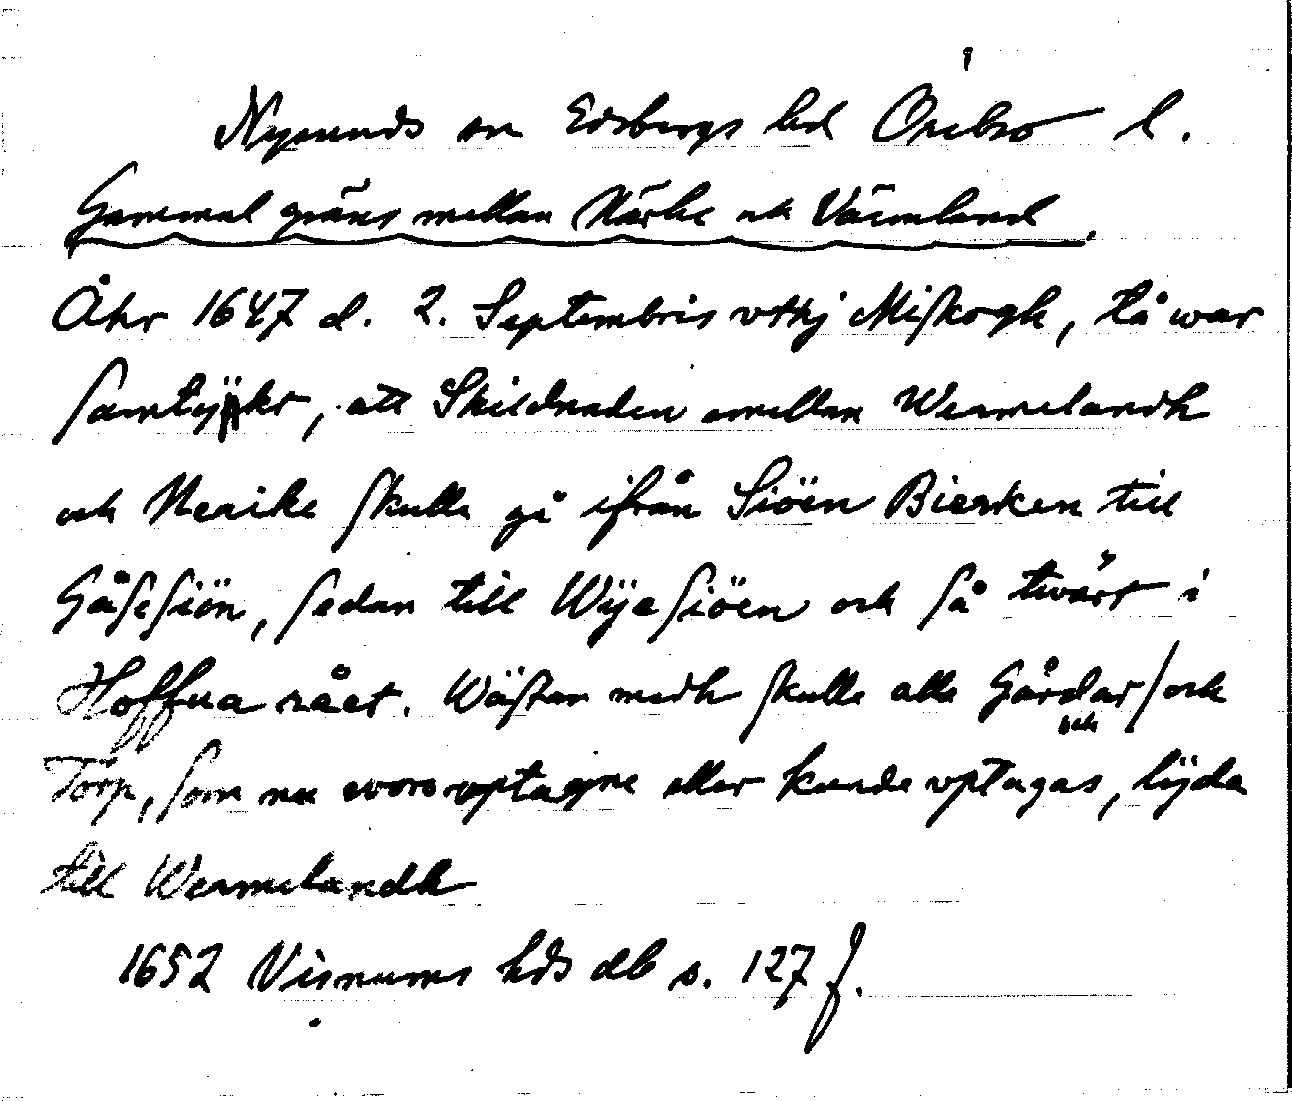 Nysunds sn Edsbergs hd Örebro l.
Gammal gräns mellan Närke och Värmland.
Åhr 1647 d. 2. Septembris vthj Miskogh, tå war
samtÿkt, att Skildnaden emellan Wermelandh
och Nerike skulle gå ifrån Siöen Bierken till
Gåsesiön, sedan till Wÿesiöen och så twärt i
Hoffua rået. Wästan medh skulle alla Gårdar/och
och
Torp, som nu wore vptagne eller kunde vptagas, lÿda
till Wermelandh
1652 Visnums hds db s. 127 f.